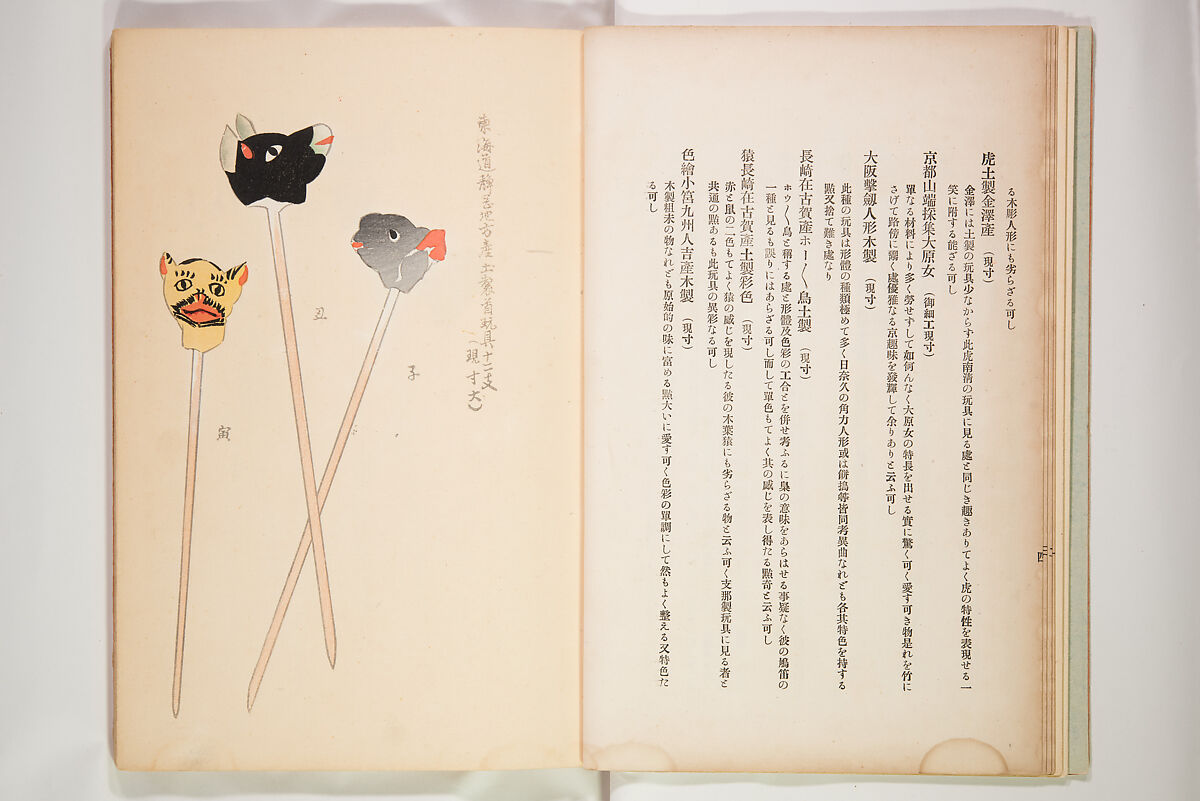 る木彫人形にも劣らざる可し
虎土製金澤產（現寸）
金澤には土製の玩具少なからず此虎南清の玩具に見る處と同じき趣きありてよく虎の特性を表現せる一
笑に附する能ざる可し
京都山端採集大原女（御細工現寸）
單なる材料により多く勞せずして如何んなく大原女の特長を出せる實に驚く可く愛す可き物是れを竹に
さげて路傍に鬻く處優雅なる京趣味を發揮して余りありと云ふ可し
大阪擊劔人形木製（現寸）
此種の玩具は形體の種類極めて多く日奈久の角力人形或は餅搗等皆同考異曲なれども各其特色を持する
點又捨て難き處なり
長崎在古賀產ホー〱鳥土製（現寸）
ホウ〱鳥と稱する處と形體及色彩の工合とを併せ考ふるに梟の意味をあらはせる事疑なく彼の鳩笛の
一種と見るも誤りにはあらざる可し而して單色もてよく其の感じを表し得たる點奇と云ふ可し
猿長崎在古賀產土製彩色（現寸）
赤と鼠の二色もてよく猿の感じを現したる彼の木葉猿にも劣らざる物と云ふ可く支那製玩具に見る者と
共通の點あるも此玩具の異彩なる可し
色繪小筥九州人吉產木製（現寸）
木製粗末の物なれども原始的の味に富める點大いに愛す可く色彩の單調にして然もよく整える又特色た
る可し
二四
一
東海道靜岡地方產土製首玩具十二支
（現寸大）
子
丑
寅